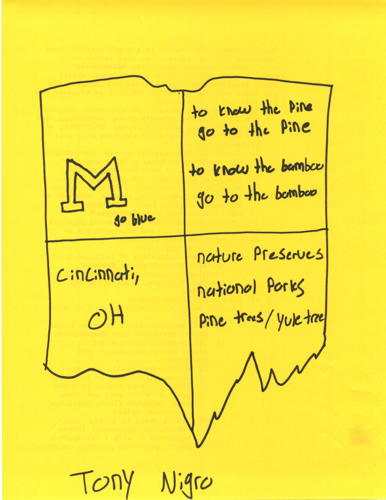 to know the Pine
go to the Pine
to know the bamboo
go to the bamboo
M
go blue
Cincinnati,
OH
nature Preserves
national Parks
Pine trees/yule tree
Tony Nigro